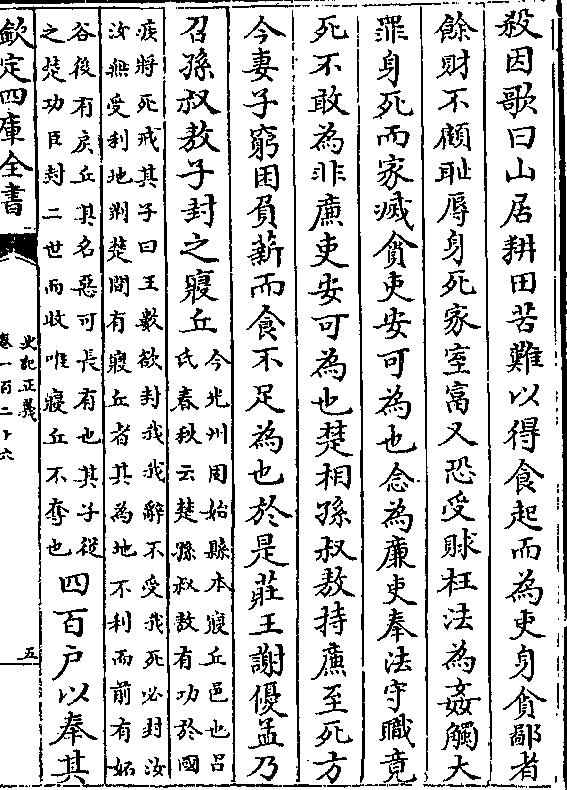 殺因歌曰山居耕田苦難以得食起而為吏身貪鄙者
餘財不顧恥辱身死家室富又恐受賕枉法為姦觸大
罪身死而家滅貪吏安可為也念為廉吏奉法守職竟
死不敢為非廉吏安可為也楚相孫叔敖持廉至死方
今妻子窮困負薪而食不足為也於是莊王謝優孟乃
召孫叔敖子封之寢丘
今光州固始縣本寢丘邑也吕
氏春秋云楚孫叔敖有功於國
疾將死戒其子曰王數欲封我我辭不受我死必封汝
汝無受利地荆楚間有寢丘者其為地不利而前有妬
谷後有戾丘其名惡可長有也其子從
之楚功臣封二世而收唯寢丘不奪也
四百户以奉其
欽定四庫全書
史記正義
卷一百二十六
五